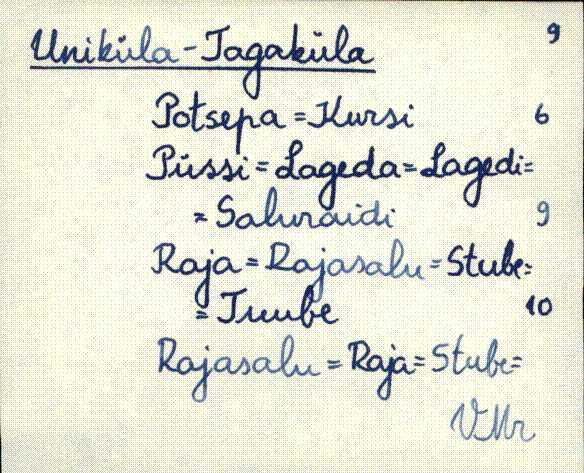 Uniküla-Tagaküla 9
Potsepa = Kursi 6
Püssi = Lageda = Lagedi =
= Saluraidi 9
Raja = Rajasalu = Stube =
= Tuube 10
Rajasalu = Raja = Stube =
VMr